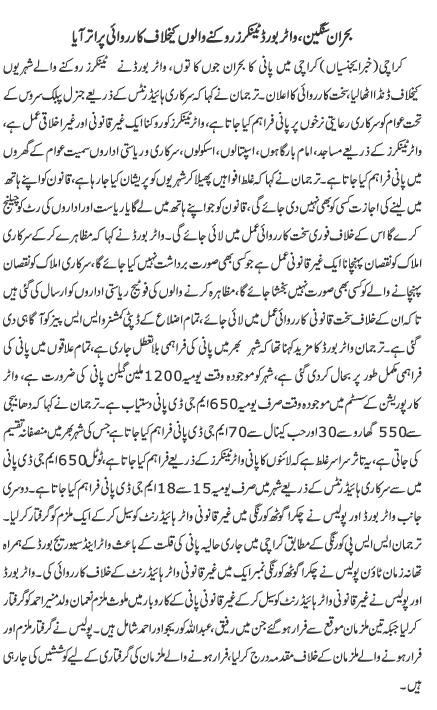 بحران سنگین، واٹر بورڈ ٹینکرز روکنے والوں کیخلاف کارروائی پر اتر آیا
کراچی (خبر ایجنسیاں) کراچی میں پانی کا بحران جوں کا توں، واٹر بورڈ نے ٹینکرز روکنے والے شہریوں
کیخلاف ڈنڈا اٹھا لیا، سخت کارروائی کا اعلان۔ ترجمان نے کہا کہ سرکاری ہائیڈرنٹس کے ذریعے جنرل پبلک سروس کے
تحت عوام کو سرکاری رعایتی نرخوں پر پانی فراہم کیا جاتا ہے، واٹر ٹینکرز کو روکنا ایک غیر قانونی اور غیر اخلاقی عمل ہے،
واٹر ٹینکرز کے ذریعے مساجد، امام بارگاہوں، اسپتالوں، اسکولوں، سرکاری و ریاستی اداروں سمیت عوام کے گھروں
میں پانی فراہم کیا جاتا ہے۔ ترجمان نے کہا کہ غلط افواہیں پھیلا کر شہریوں کو پریشان کیا جا رہا ہے، قانون کو اپنے ہاتھ
میں لینے کی اجازت کسی کو بھی نہیں دی جائے گی، قانون کو جو اپنے ہاتھ میں لے گا یا ریاست اور اداروں کی رٹ کو چیلنج
کرے گا اس کے خلاف فوری سخت کارروائی عمل میں لائی جائے گی۔ واٹر بورڈ نے کہا کہ مظاہرے کر کے سرکاری
املاک کو نقصان پہنچانا ایک غیر قانونی عمل ہے جو کسی بھی صورت برداشت نہیں کیا جائے گا، سرکاری املاک کو نقصان
پہنچانے والے کو کسی بھی صورت نہیں بخشا جائے گا، مظاہرہ کرنے والوں کی فوٹیج ریاستی اداروں کو ارسال کی گئی
تاکہ ان کے خلاف سخت قانونی کارروائی عمل میں لائی جائے، تمام اضلاع کے ڈپٹی کمشنر و ایس ایس پیز کو آگاہی دی
گئی ہے۔ ترجمان واٹر بورڈ کا مزید کہنا تھا کہ شہر بھر میں پانی کی فراہمی بلاتعطل جاری ہے، تمام علاقوں میں پانی کی
فراہمی مکمل طور پر بحال کر دی گئی ہے، شہر کو موجودہ وقت یومیہ 1200 ملین گیلن پانی کی ضرورت ہے، واٹر
کارپوریشن کے سسٹم میں موجودہ وقت صرف یومیہ 650 ایم جی ڈی پانی دستیاب ہے۔ ترجمان نے کہا کہ دھابیجی
سے 550 گھارو سے 30 اور حب کینال سے 70 ایم جی ڈی پانی فراہم کیا جاتا ہے جس کی شہر بھر میں منصفانہ تقسیم
کی جاتی ہے، یہ تاثر سراسر غلط ہے کہ لائنوں کا پانی واٹر ٹینکرز کے ذریعے فراہم کیا جاتا ہے، ٹوٹل 650 ایم جی ڈی پانی
میں سے سرکاری ہائیڈرنٹس کے ذریعے شہر میں صرف یومیہ 15 سے 18 ایم جی ڈی پانی فراہم کیا جاتا ہے۔ دوسری
جانب واٹر بورڈ اور پولیس نے چکرا گوٹھ کورنگی میں غیر قانونی واٹر ہائیڈرنٹ کو سیل کر کے ایک ملزم کو گرفتار کر لیا۔
ترجمان ایس ایس پی کورنگی کے مطابق کراچی میں جاری حالیہ پانی کی قلت کے باعث واٹر اینڈ سیوریج بورڈ کے ہمراہ
تھانہ زمان ٹاؤن پولیس نے چکرا گوٹھ کورنگی نمبر ایک میں غیر قانونی واٹر ہائیڈرنٹ کے خلاف کارروائی کی۔ واٹر بورڈ
اور پولیس نے غیر قانونی واٹر ہائیڈرنٹ کو سیل کر کے غیر قانونی پانی کے کاروبار میں ملوث ملزم نعمان ولد منیر احمد کو گرفتار
کر لیا جبکہ تین ملزمان موقع سے فرار ہو گئے جن میں رفیق، عبداللہ کوریجو اور احمد شامل ہیں۔ پولیس نے گرفتار ملزم اور
فرار ہونے والے ملزمان کے خلاف مقدمہ درج کر لیا، فرار ہونے والے ملزمان کی گرفتاری کے لیے کوششیں کی جا رہی
ہیں۔